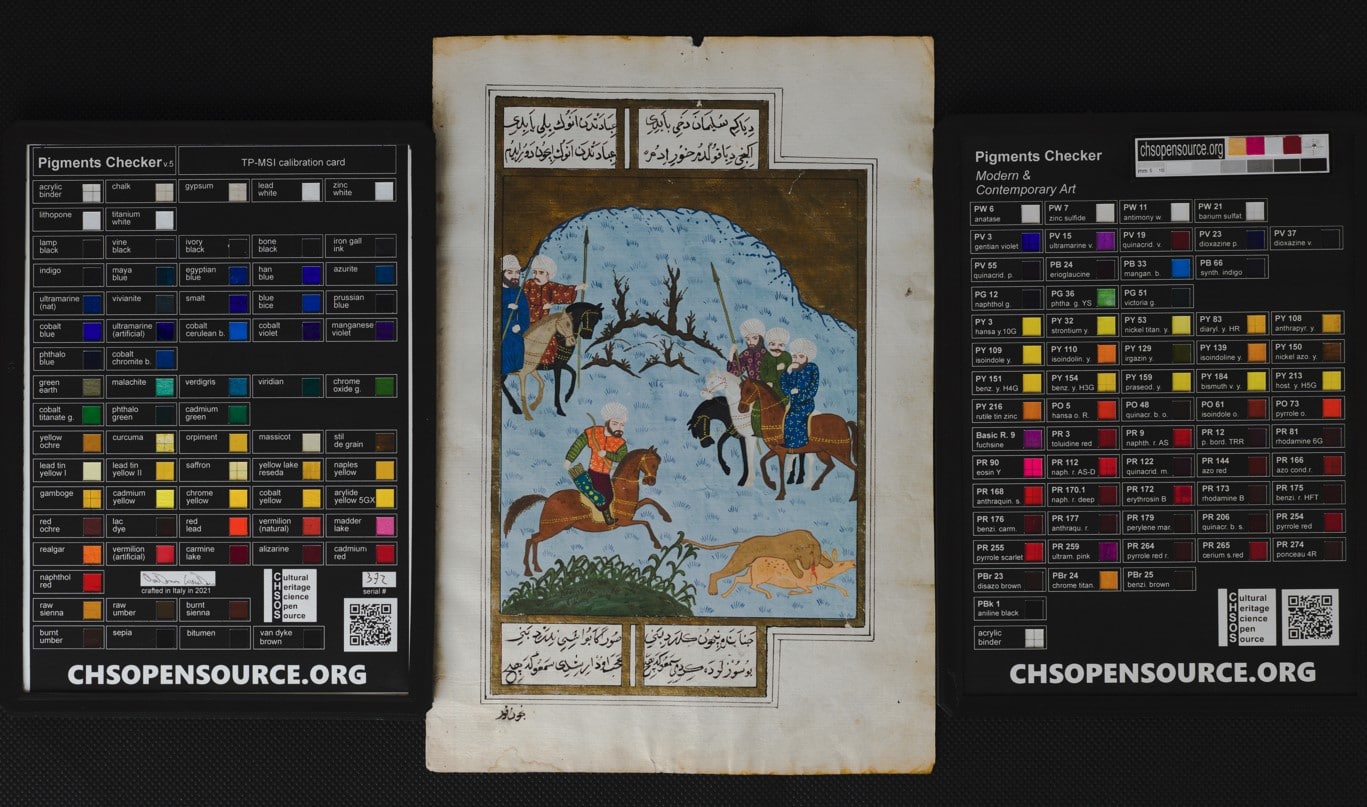 Pigments Checker v.5
TP-MSI calibration card
acrylic binder
chalk
gypsum
lead white
zinc white
lithopone
titanium white
lamp black
vine black
ivory black
bone black
iron gall ink
indigo
maya blue
egyptian blue
han blue
azurite
ultramarine (nat)
vivianite
smalt
blue bice
prussian blue
cobalt blue
ultramarine (artificial)
cobalt cerulean b.
cobalt violet
manganese violet
phthalo blue
cobalt chromite b.
green earth
malachite
verdigris
viridian
chrome oxide g.
cobalt titanate g.
phthalo green
cadmium green
yellow ochre
curcuma
orpiment
massicot
stil de grain
lead tin yellow I
lead tin yellow II
saffron
yellow lake reseda
naples yellow
gamboge
cadmium yellow
chrome yellow
cobalt yellow
arylide yellow 5GX
red ochre
lac dye
red lead
vermilion (natural)
madder lake
realgar
vermilion (artificial)
carmine lake
alizarine
cadmium red
naphthol red
crafted in Italy in 2021
Cultural Heritage Science Open Source
serial #
raw sienna
raw umber
burnt sienna
burnt umber
sepia
bitumen
van dyke brown
CHSOPENSOURCE.ORG
Pigments Checker
Modern & Contemporary Art
chsopensource.org
PW 6 anatase
PW 7 zinc sulfide
PW 11 antimony w.
PW 21 barium sulfat
PV 3 gentian violet
PV 15 ultramarine v.
PV 19 quinacrid. v.
PV 23 dioxazine p.
PV 37 dioxazine v.
PV 55 quinacrid. p.
PB 24 erioglaucine
PB 33 mangan. b.
PB 66 synth. indigo
PG 12 naphthol g.
PG 36 phtha. g. YS
PG 51 victoria g.
PY 3 hansa y.10G
PY 32 strontium y.
PY 53 nickel titan. y.
PY 83 diaryl. y. HR
PY 108 anthrapyr. y
PY 109 isoindole y.
PY 110 isoindolin. y.
PY 129 irgazin y.
PY 139 isoindoline y.
PY 150 nickel azo. y.
PY 151 benz. y. H4G
PY 154 benz. y. H3G
PY 159 praseod. y.
PY 184 bismuth v. y.
PY 213 host. y. H5G
PY 216 rutile tin zinc
PO 5 hansa o. R.
PO 48 quinacr. b. o.
PO 61 isoindole o.
PO 73 pyrrole o.
Basic R. 9 fuchsine
PR 3 toluidine red
PR 9 naphth. r. AS
PR 12 p. bord. TRR
PR 81 rhodamine 6G
PR 90 eosin Y
PR 112 naph. r. AS-D
PR 122 quinacrid. m.
PR 144 azo red
PR 166 azo cond.r.
PR 168 anthraquin. s.
PR 170.1 naph. r. deep
PR 172 erythrosin B
PR 173 rhodamine B
PR 175 benzi. r. HFT
PR 176 benzi. carm.
PR 177 anthraqu. r.
PR 179 perylene mar.
PR 206 quinacr. b. s.
PR 254 pyrrole red
PR 255 pyrrole scarlet
PR 259 ultram. pink
PR 264 pyrrole red r.
PR 265 cerium s.red
PR 274 ponceau 4R
PBr 23 disazo brown
PBr 24 chrome titan.
PBr 25 benzi. brown
PBk 1 aniline black
acrylic binder
Cultural Heritage Science Open Source
CHSOPENSOURCE.ORG